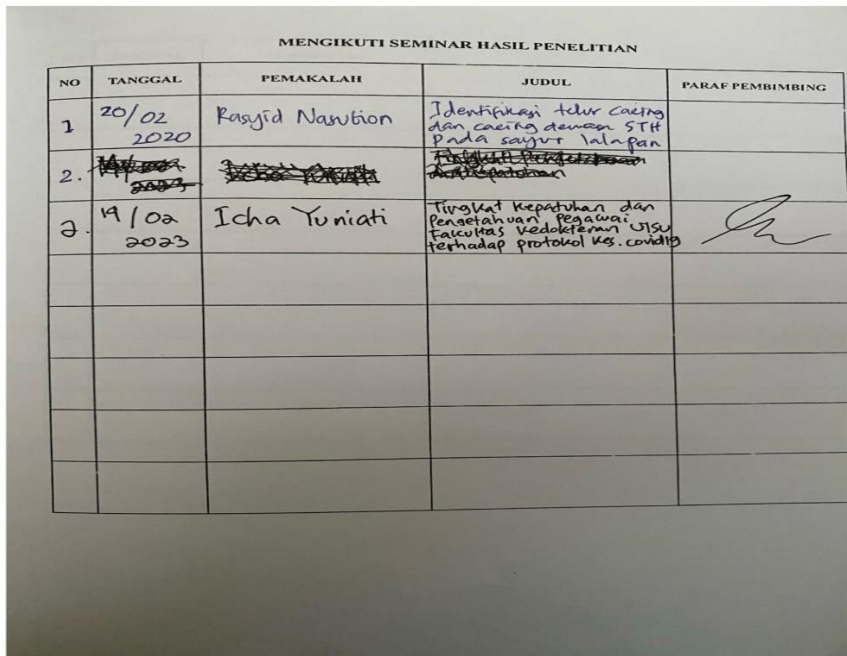 MENGIKUTI SEMINAR HASIL PENELITIAN
NO TANGGAL PEMAKALAH JUDUL PARAF PEMBIMBING
1 20/02 2020 Rasyid Nasution Identifikasi telur cacing
dan cacing dewasa STH
pada sayur lalapan
2. 2023
2. 19/02 2023 Icha Yuniati Tingkat Kepatuhan dan
Pengetahuan Pegawai
Fakultas Kedokteran UISU
terhadap protokol kes. covid19